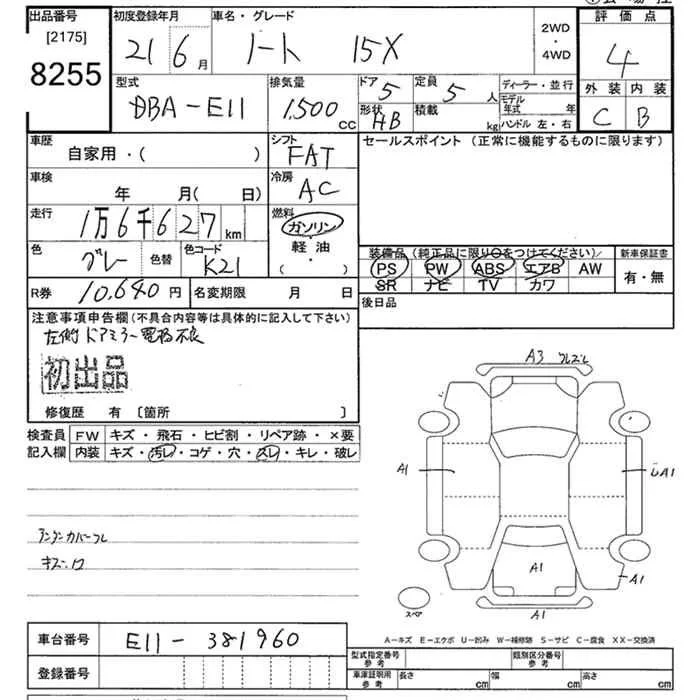 出品番号 初度登録年月 車名・グレード 2WD・4WD 評価点
[2175]
8255
21 6月 ノート 15X 4
型式 排気量 ドア 定員 ディーラー・並行 外装 内装
DBA-E11 1,500cc 5 5人 モデル年式 年 C B
形状 HB 積載 kg ハンドル 左・右
車歴 シフト セールスポイント (正常に機能するものに限ります)
自家用・( ) FAT
車検 冷房
年 月( 日) AC
走行 燃料
1万6千627km ガソリン
軽油
( ・ )
色 色替 色コード
グレー K21
装備品 (純正品に限り○をつけてください) 新車保証書
PS PW ABS エアB AW 有・無
SR ナビ TV カワ
R券 10,640円 名変期限 月 日 後日品
注意事項申告欄(不具合内容等は具体的に記入して下さい)
左側ドアミラー電格不良
初出品
修復歴 有 [箇所 ]
検査員 FW キズ・飛石・ヒビ割・リペア跡・×要
記入欄 内装 キズ・汚レ・コゲ・穴・スレ・キレ・破レ
A3
A1
A1
A1
A1
A1
アンダーカバー
スペア
A－キズ E－エクボ U－凹み W－補修跡 S－サビ C－腐食 XX－交換済
車台番号 E11-381960
登録番号
型式指定番号 参考 類別区分番号 参考
車庫証明用 参考 長さ cm 幅 cm 高さ cm